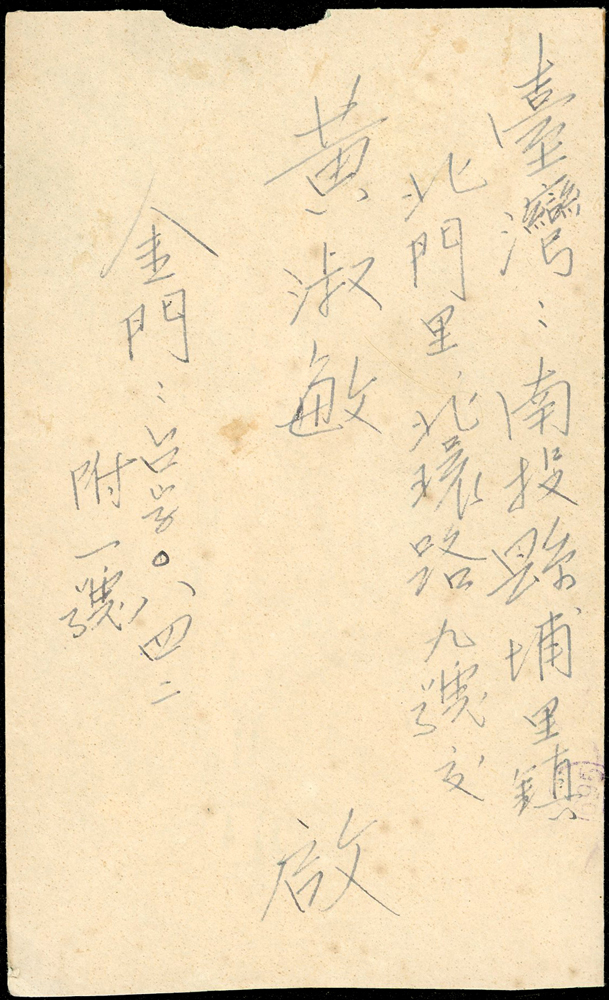 臺灣：南投縣埔里鎮
北門里，北環路九號交
黃淑敏
啟
金門：台字。八四二
附一號